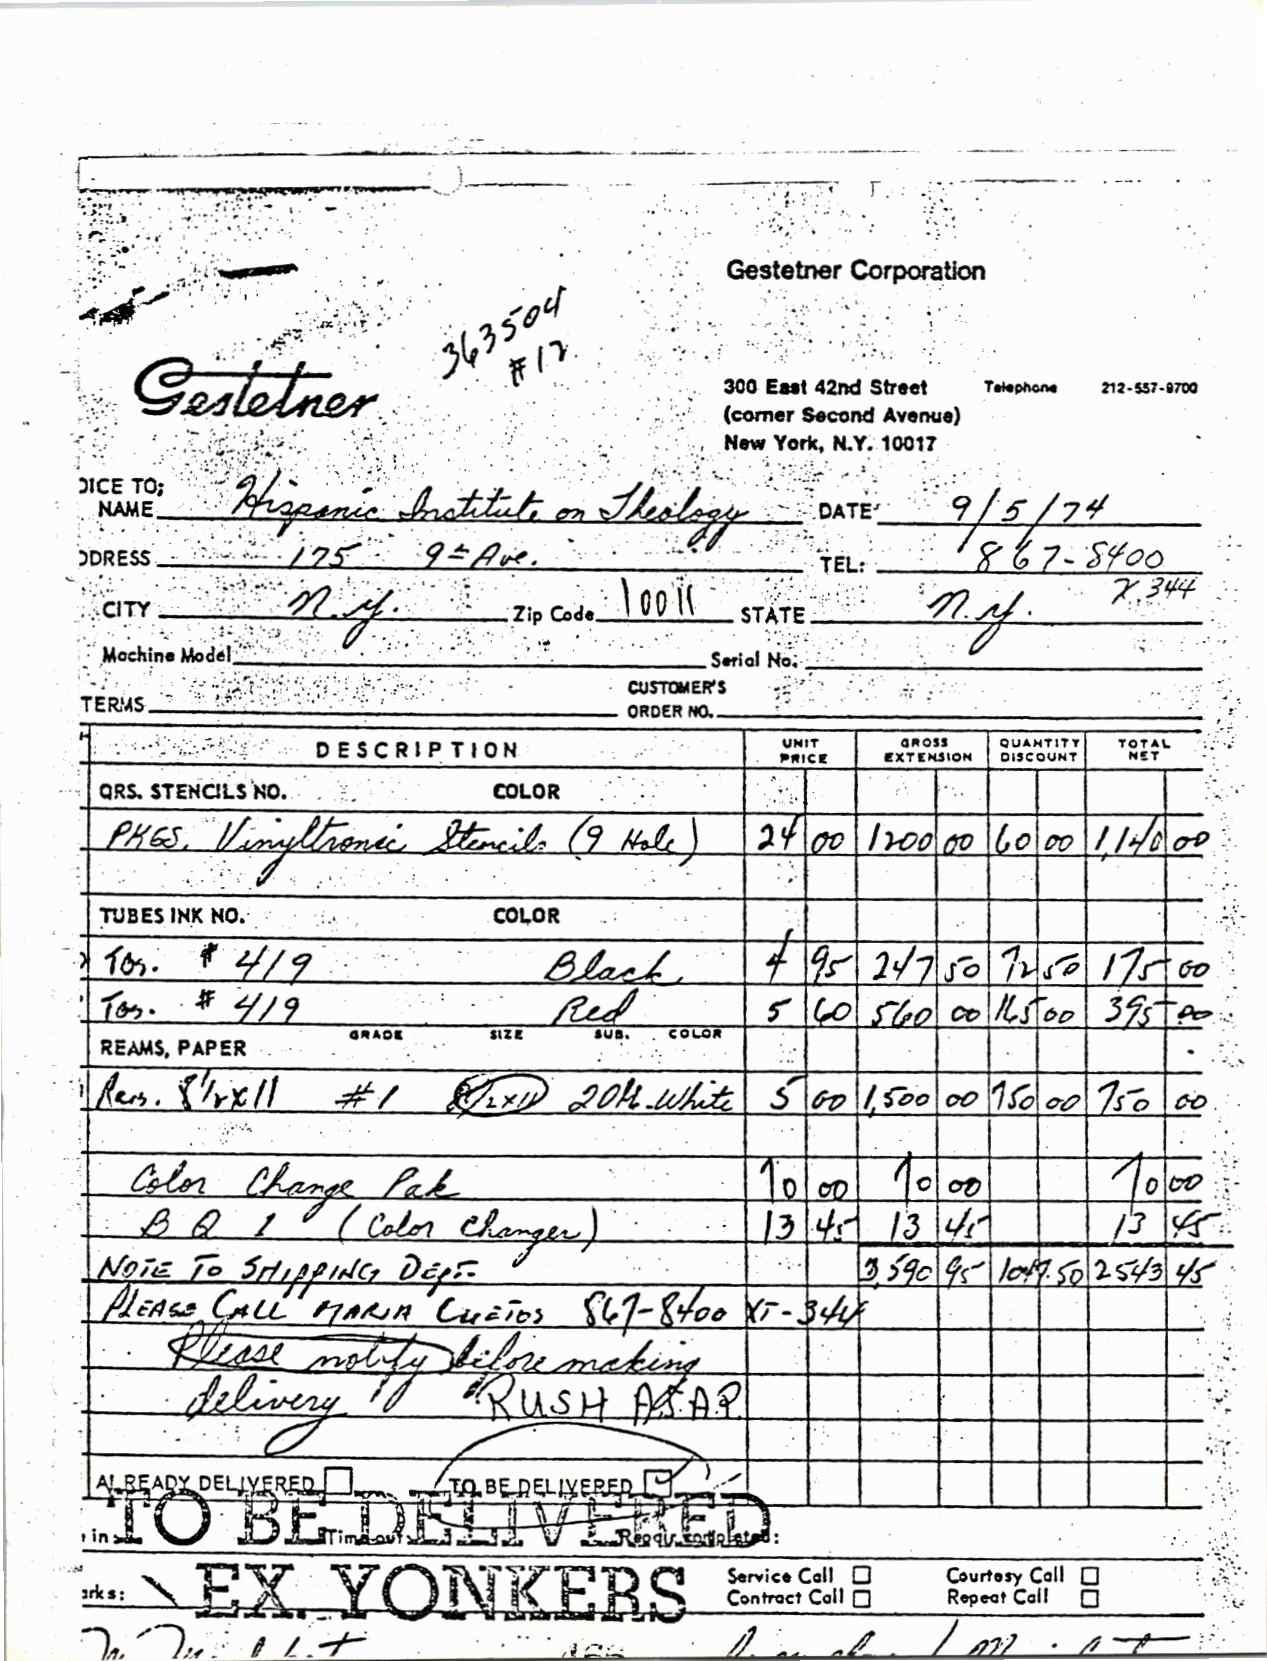 Gestetner Corporation
363504
#12
Gestetner
300 East 42nd Street Telephone 212-557-9700
(corner Second Avenue)
New York, N.Y. 10017
OICE TO;
NAME Hispanic Institute on Theology DATE 9/5/74
DDRESS 175 9th Ave. TEL: 867-8400
X 344
CITY N.Y. Zip Code 10011 STATE N.Y.
Machine Model Serial No.
TERMS CUSTOMER'S ORDER NO.
DESCRIPTION UNIT PRICE GROSS EXTENSION QUANTITY DISCOUNT TOTAL NET
QRS. STENCILS NO. COLOR
PKGS. Vinyltronic Stencils (9 Hole) 24 00 1200 00 60 00 1,140 00
TUBES INK NO. COLOR
# 419 Black 4 95 247 50 72 50 175 00
# 419 Red 5 60 560 00 165 00 395 00
GRADE SIZE SUB. COLOR
REAMS, PAPER
8 1/2 x 11 #1 8 1/2 x 11 20# White 5 00 1,500 00 750 00 750 00
Color Change Pak 70 00 70 00 70 00
B Q 1 (Color Changer) 13 45 13 45 13 45
NOTE TO SHIPPING DEPT. 3,590 95 1047.50 2543 45
PLEASE CALL MARIA CUETOS 867-8400 XT-344
Please notify before making
delivery RUSH ASAP
ALREADY DELIVERED TO BE DELIVERED
TO BE DELIVERED
in Time out Repair completed:
EX YONKERS
Service Call Courtesy Call
arks: Contract Call Repeat Call